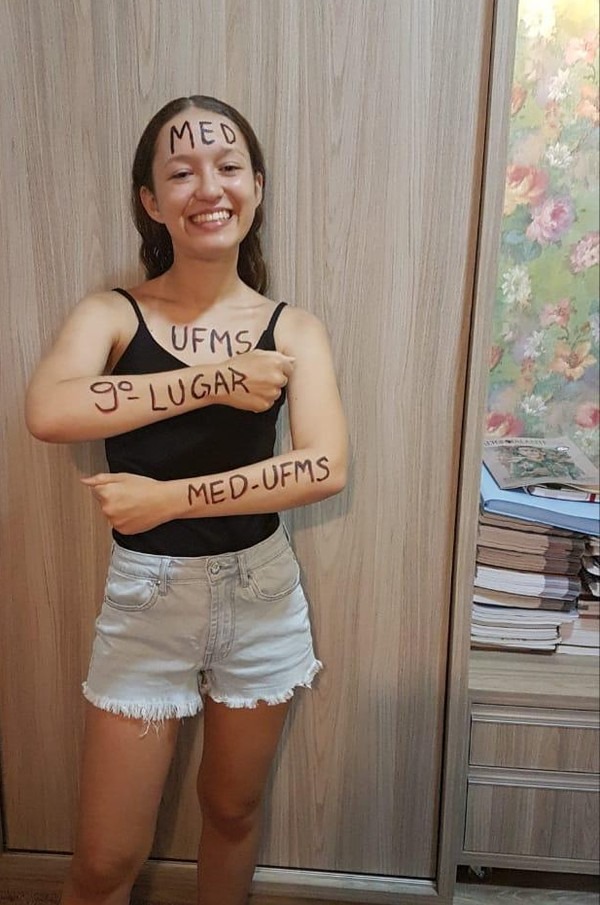 MED
UFMS
9º LUGAR
MED-UFMS